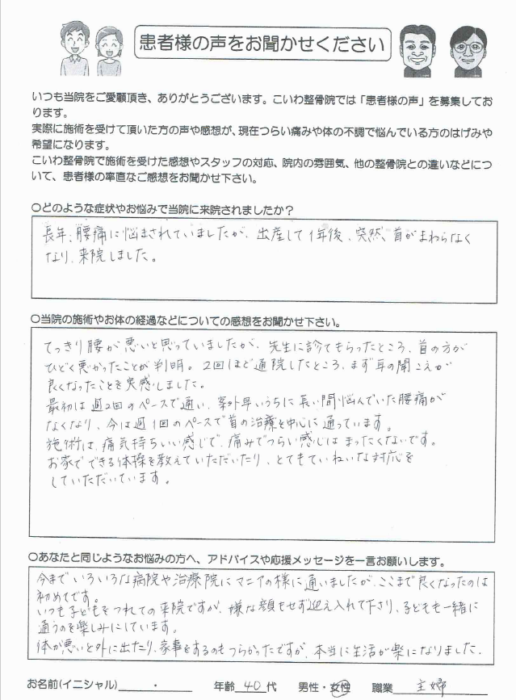 患者様の声をお聞かせください
いつも当院をご愛顧頂き、ありがとうございます。こいわ整骨院では「患者様の声」を募集してお
ります。
実際に施術を受けて頂いた方の声や感想が、現在つらい痛みや体の不調で悩んでいる方のはげみや
希望になります。
こいわ整骨院で施術を受けた感想やスタッフの対応、院内の雰囲気、他の整骨院との違いなどにつ
いて、患者様の率直なご感想をお聞かせ下さい。
○どのような症状やお悩みで当院に来院されましたか？
長年、腰痛に悩まされていましたが、出産して1年後、突然、首がまわらなく
なり、来院しました。
○当院の施術やお体の経過などについての感想をお聞かせ下さい。
てっきり腰が悪いと思っていましたが、先生に診てもらったところ、首の方が
ひどく悪かったことが判明。2回ほど通院したところ、まず耳の聞こえが
良くなったことを実感しました。
最初は週2回のペースで通い、案外早いうちに長い間悩んでいた腰痛が
なくなり、今は週1回のペースで首の治療を中心に通っています。
施術は、痛気持ちいい感じで、痛みでつらい感じはまったくないです。
お家でできる体操を教えていただいたり、とてもていねいな対応を
していただいています。
○あなたと同じようなお悩みの方へ、アドバイスや応援メッセージを一言お願いします。
今までいろいろな病院や治療院にマニアの様に通いましたが、ここまで良くなったのは
初めてです。
いつも子どもをつれての来院ですが、嫌な顔もせず迎え入れて下さり、子どもも一緒に
通うのを楽しみにしています。
体が悪いと外に出たり、家事をするのもつらかったですが、本当に生活が楽になりました。
お名前(イニシャル) ・ 年齢 40 代 男性・女性 職業 主婦